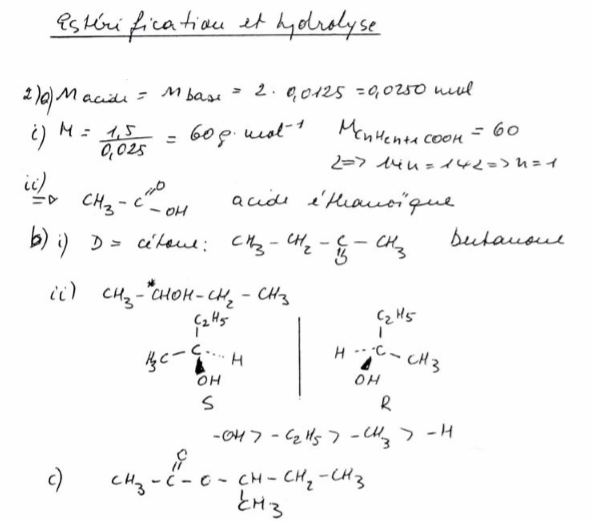 Estérification et hydrolyse
2)a) n acide = n base = 2 · 0,0125 = 0,0250 mol
i) M = 1,5 / 0,025 = 60 g·mol⁻¹ M CnH2n+1 COOH = 60
2=> 14n = 14 2 => n = 1
ii)
=> CH3 - C =O - OH acide éthanoïque
b) i) D = cétone: CH3 - CH2 - C - CH3 butanone
O
ii) CH3 - *CHOH - CH2 - CH3
C2H5 C2H5
H3C - C ···· H H ··· C - CH3
OH OH
S R
-OH > - C2H5 > - CH3 > - H
O
c) CH3 - C - O - CH - CH2 - CH3
CH3